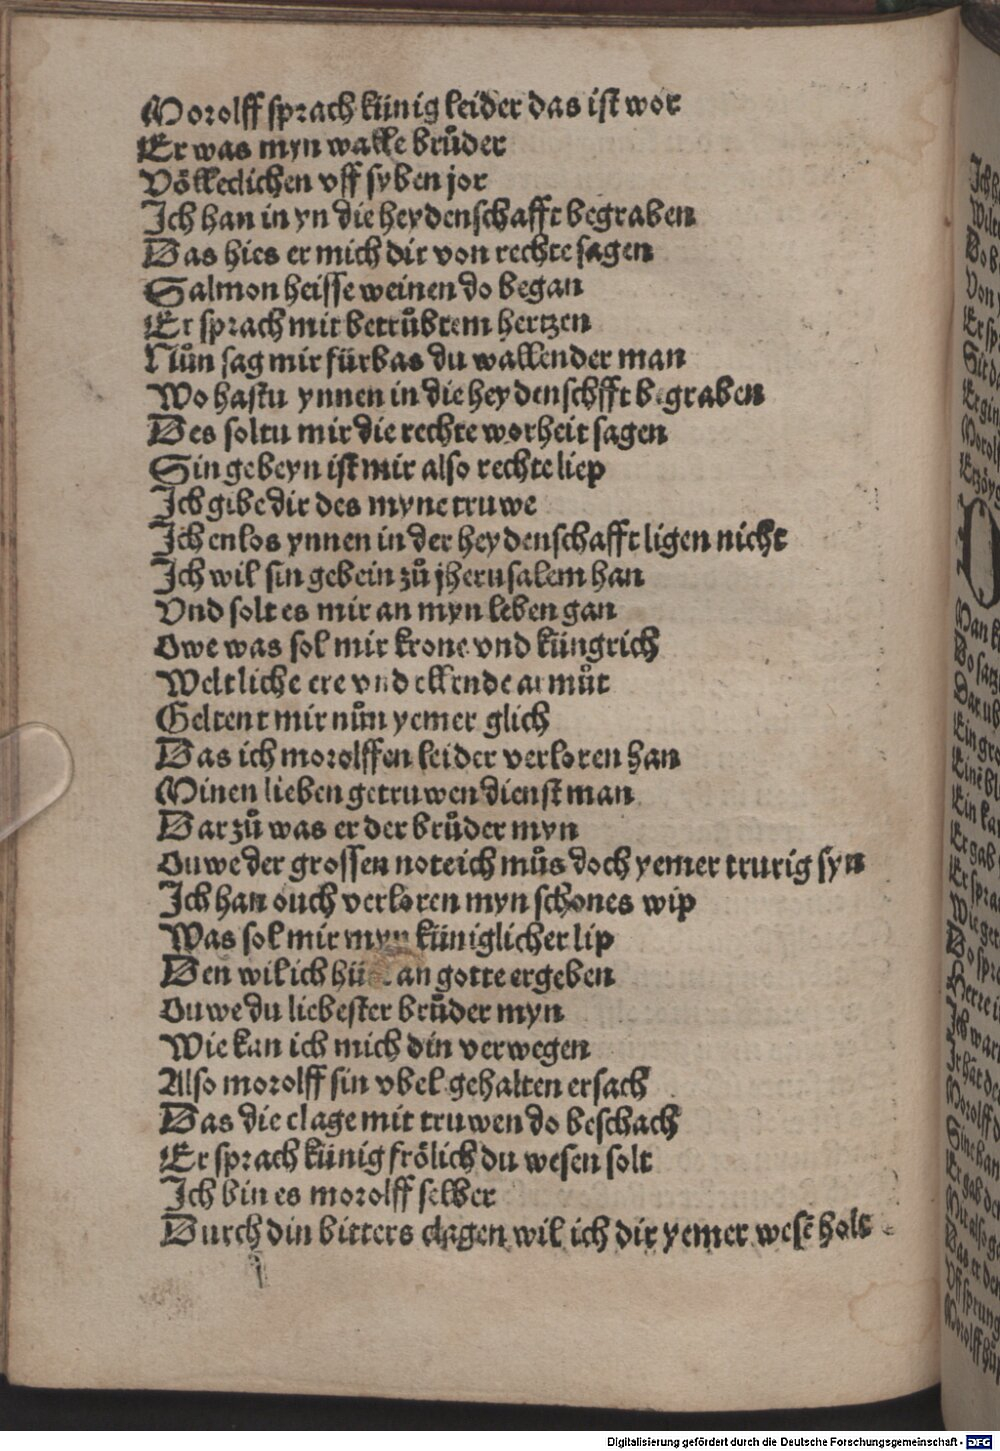 Morolff sprach künig leider das ist wor
Er was myn walle brůder
Völleclichen vff syben jor
Ich han in yn die heydenschafft begraben
Das hies er mich dir von rechte sagen
Salmon heisse weinen do began
Er sprach mit betrůbtem hertzen
Nůn sag mir fürbas du wallender man
Wo hastu ynnen in die heydenschfft begraben
Des soltu mir die rechte worheit sagen
Sin gebeyn ist mir also rechte liep
Ich gibe dir des myne truwe
Ich enlos ynnen in der heydenschafft ligen nicht
Ich wil sin gebein zů jherusalem han
Vnd solt es mir an myn leben gan
Owe was sol mir krone vnd küngrich
Weltliche ere vnd ellende armůt
Geltent mir nůn yemer glich
Das ich morolffen leider verloren han
Minen lieben getruwen dienst man
Dar zů was er der brůder myn
Ouwe der grossen not eich můs doch yemer trurig syn
Ich han ouch verloren myn schones wip
Was sol mir myn küniglicher lip
Den wil ich an gotte ergeben
Ouwe du liebester brůder myn
Wie kan ich mich din verwegen
Also morolff sin vbel gehalten ersach
Das die clage mit truwen do beschach
Er sprach künig frölich du wesen solt
Ich bin es morolff selber
Durch din bitters clagen wil ich dir yemer wesē holt
Digitalisierung gefördert durch die Deutsche Forschungsgemeinschaft - DFG